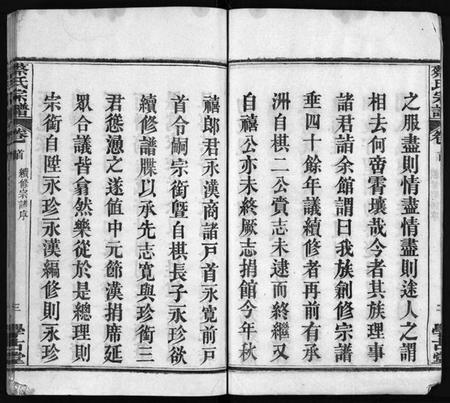 蔡氏宗譜
卷首
之服盡則情盡情盡則途人之謂
相去何啻霄壤哉今者其族理事
諸君詣余館謂曰我族創修宗譜
垂四十餘年議續修者再前有承
洲自棋二公賫志未逮而終繼又
自禧公亦未終厥志捐館今年秋
禧郎君永漢商諸戸首永寛前戸
首令嗣宗銜暨自棋長子永珍欲
續修譜牒以承先志寛與珍銜三
君慫慂之遂值中元節漢捐席延
眾合議皆翕然樂從於是總理則
宗銜自陞永珍永漢編修則永珍
蔡氏宗譜
卷首
續修宗譜序
三
學古堂